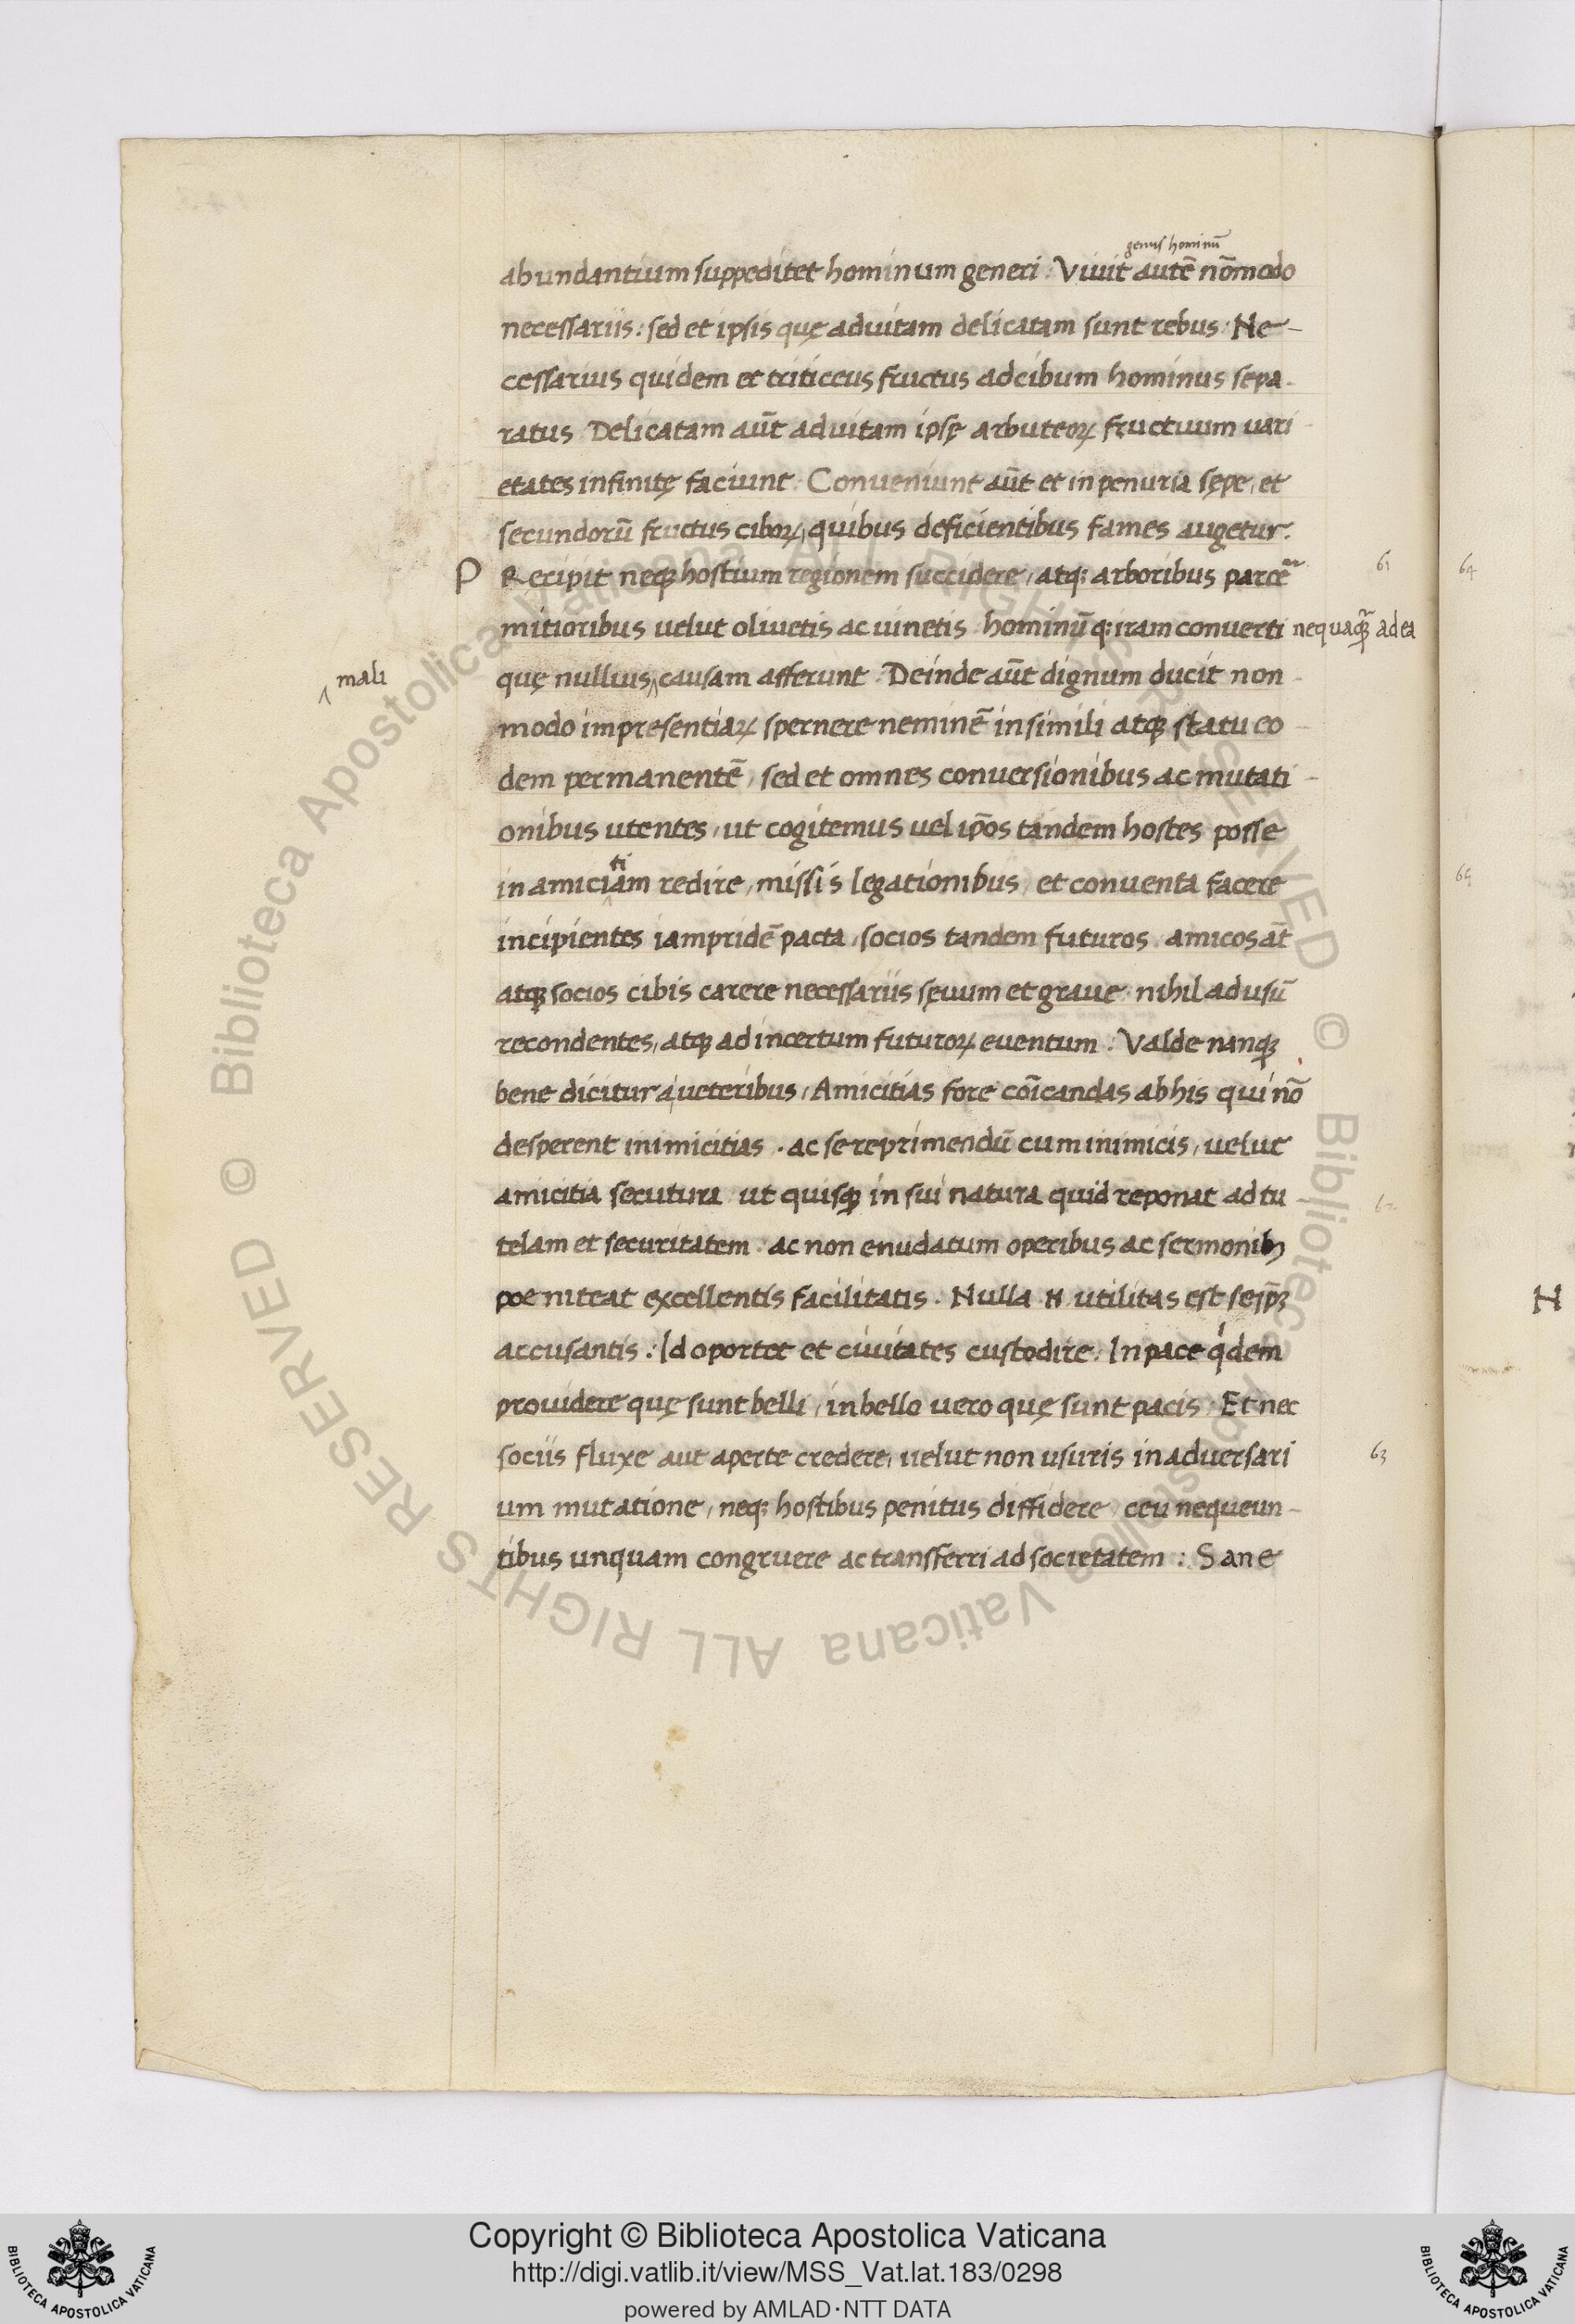 genus hominũ
abundantium suppeditet hominum generi : Viuit autẽ nõmodo
necessariis : sed et ipsis quę aduitam delicatam sunt rebus : Ne-
cessarius quidem et triticeus fructus adcibum hominus sepa-
ratus Delicatam aūt aduitam ipsę arbuteoꝝ fructuum uari-
etates infinitę faciunt . Conueniunt aūt et in penuria sępe , et
secundorũ fructus ciboꝝ , quibus deficientibus fames augetur .
P Recipit neqꝫ hostium regionem succidere , atqꝫ arboribus parcẽ 61 64
mitioribus uelut oliuetis ac uinetis hominũ qꝫ iram conuerti nequaqꝫ̃ adea
mali
quę nullius ‸ causam afferunt . Deinde aūt dignum ducit non-
modo impresentiaꝝ spernere neminẽ insimili atqꝫ statu eo-
dem permanentẽ , sed et omnes conuersionibus ac mutati-
onibus utentes , ut cogitemus uel ip̃os tandem hostes posse
ti
in amiciam redire , missis legationibus , et conuenta facere 65
incipientes iampridẽ pacta , socios tandem futuros . amicos at̃
atqꝫ socios cibis carere necessariis sęuum et graue . nihil adusũ
recondentes , atqꝫ ad incertum futuroꝝ euentum : Valde nanqꝫ
bene dicitur á ueteribus , Amicitias fore cõicandas abhis qui nõ
desperent inimicitias . ac se reprimendũ cum inimicis , uelut
amicitia secutura ut quisqꝫ in sui natura quid reponat ad tu- 62
telam et securitatem : ac non enudatum operibus ac sermonibꝫ
poeniteat excellentis facilitatis . Nulla N utilitas est seip̃ꝫ
accusantis . Id oportet et ciuitates custodire . In pace qͥdem
prouidere quę sunt belli , in bello uero quę sunt pacis . Et nec
sociis fluxe aut aperte credere , uelut non usuris in aduersari 63
um mutatione , neqꝫ hostibus penitus diffidere ceu nequeun-
tibus unquam congruere ac transferri ad societatem : Sane
N
© Biblioteca Apostolica Vaticana ALL RIGHTS RESERVED © Biblioteca Apostolica Vaticana ALL RIGHTS RESERVED
Copyright © Biblioteca Apostolica Vaticana
http://digi.vatlib.it/view/MSS_Vat.lat.183/0298
powered by AMLAD·NTT DATA
BIBLIOTECA APOSTOLICA VATICANA
BIBLIOTECA APOSTOLICA VATICANA